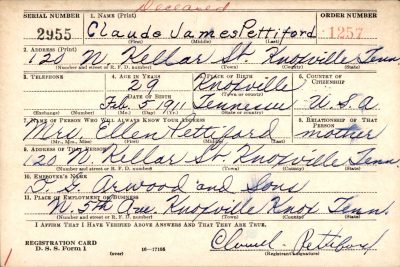 Deceased
SERIAL NUMBER 1. NAME (Print) ORDER NUMBER
2955 Claude James Pettiford 1257
(First) (Middle) (Last)
2. ADDRESS (Print)
120 N. Kellar St. Knoxville Tenn
(Number and street or R. F. D. number) (Town) (County) (State)
3. TELEPHONE 4. AGE IN YEARS 5. PLACE OF BIRTH 6. COUNTRY OF CITIZENSHIP
29 Knoxville
DATE OF BIRTH (Town or county)
Feb. 5 1911 Tennessee U.S.A
(Exchange) (Number) (Mo.) (Day) (Yr.) (State or country)
7. NAME OF PERSON WHO WILL ALWAYS KNOW YOUR ADDRESS 8. RELATIONSHIP OF THAT PERSON
Mrs. Ellen Pettiford mother
(Mr., Mrs., Miss) (First) (Middle) (Last)
9. ADDRESS OF THAT PERSON
120 N Kellar St. Knoxville Tenn.
(Number and street or R. F. D. number) (Town) (County) (State)
10. EMPLOYER'S NAME
Arwood and Sons
11. PLACE OF EMPLOYMENT OR BUSINESS
N. 5th Ave. Knoxville Knox Tenn.
(Number and street or R. F. D. number) (Town) (County) (State)
I AFFIRM THAT I HAVE VERIFIED ABOVE ANSWERS AND THAT THEY ARE TRUE.
REGISTRATION CARD
D. S. S. Form 1 (over) 16—17105 Pettiford
(Registrant's signature)